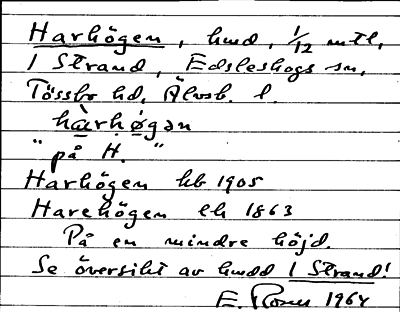 Harhögen, hmd, 1/12 mtl,
1 Strand, Edsleskogs sn,
Tössbo hd, Älvsb. l.
hàrhø̀gən
"på H."
Harhögen kb 1905
Harehögen ek 1863
På en mindre höjd.
Se översikt av hmdd 1 Strand!
E. Rosen 1964